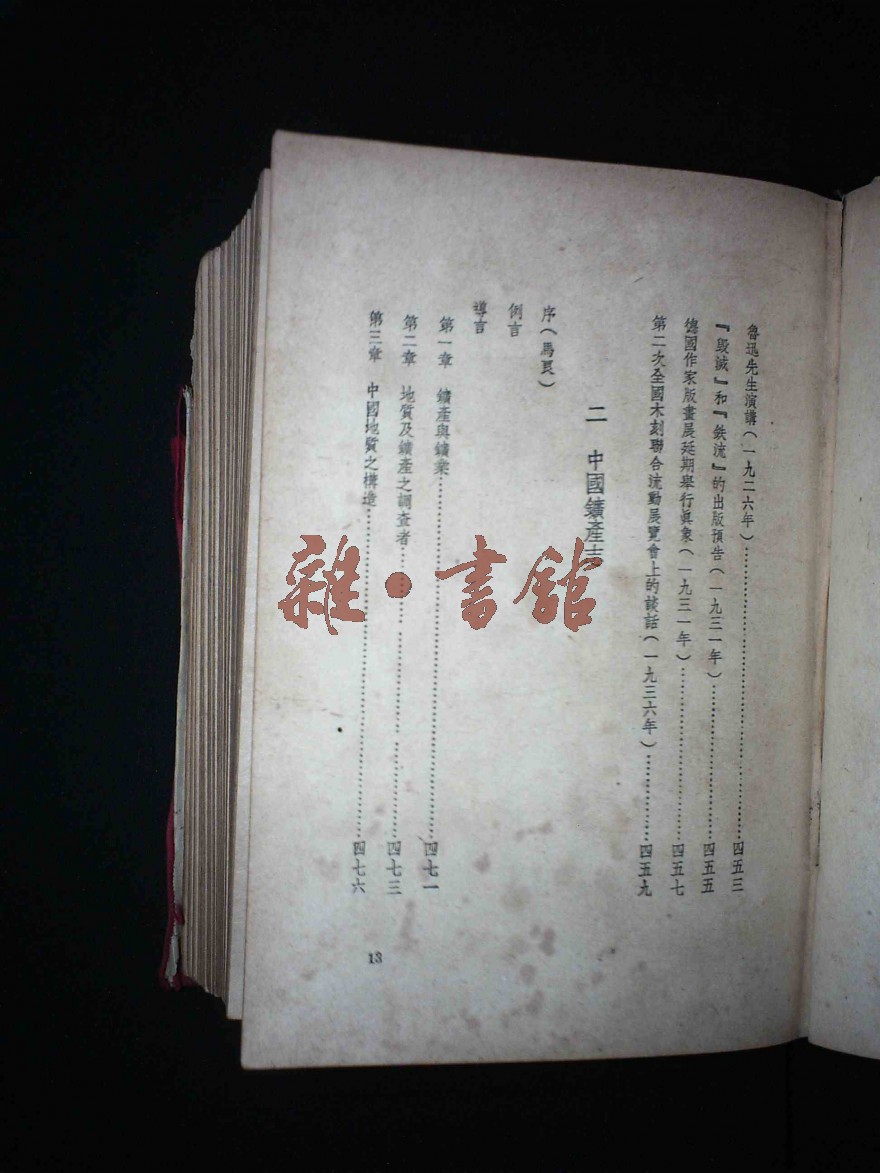 魯迅先生演講(一九二六年)…………四五三
『毀滅』和『鉄流』的出版預告(一九三一年)…………四五五
德國作家版畫展延期舉行眞象(一九三一年)…………四五七
第二次全國木刻聯合流動展覽會上的談話(一九三六年)…………四五九
二 中國鑛產志
序(馬良)
例言
導言
第一章 鑛產與鑛業…………四七一
第二章 地質及鑛產之調查者…………四七三
第三章 中國地質之構造…………四七六
13
雜·書館